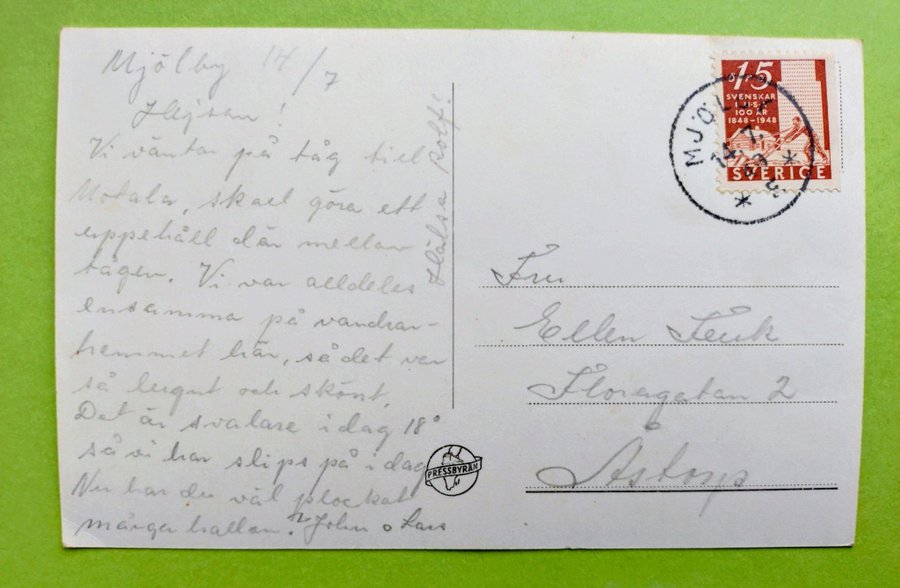 Mjölby 14/7
Hejsan!
Vi väntar på tåg till
Motala, skall göra ett
uppehåll där mellan
tågen. Vi var alldeles
ensamma på vandrar-
hemmet här, så det var
så lugnt och skönt.
Det är svalare idag 18°
så vi har slips på idag
Nu har du väl plockat
många hallon? John o Lars
Hälsa Rolf!
PRESSBYRÅN
15
SVENSKAR
I U.S.A.
100 ÅR
1848-1948
SVERIGE
MJÖLBY
14.7.
Fru
Ellen Feuk
Floragatan 2
Åstorp